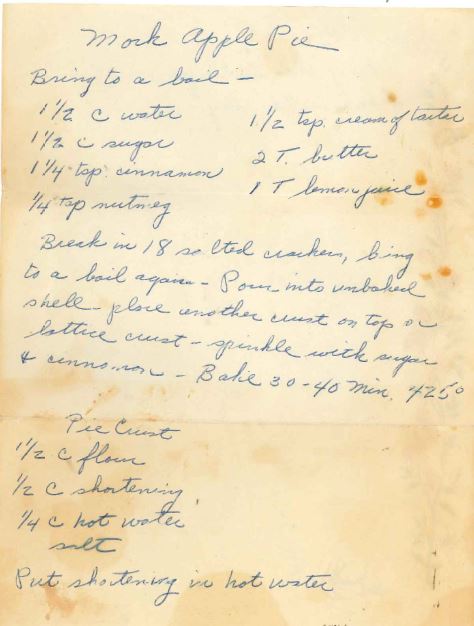 Mock Apple Pie
Bring to a boil -
1 1/2 c water
1 1/2 c sugar
1 1/4 tsp. cinnamon
1/4 tsp nutmeg
1 1/2 tsp. cream of tarter
2 T. butter
1 T lemon juice
Break in 18 salted crackers, bring
to a boil again - Pour into unbaked
shell - place another crust on top or
lattice crust - sprinkle with sugar
& cinnamon - Bake 30-40 Min. 425°
Pie Crust
1 1/2 c flour
1/2 c shortening
1/4 c hot water
salt
Put shortening in hot water